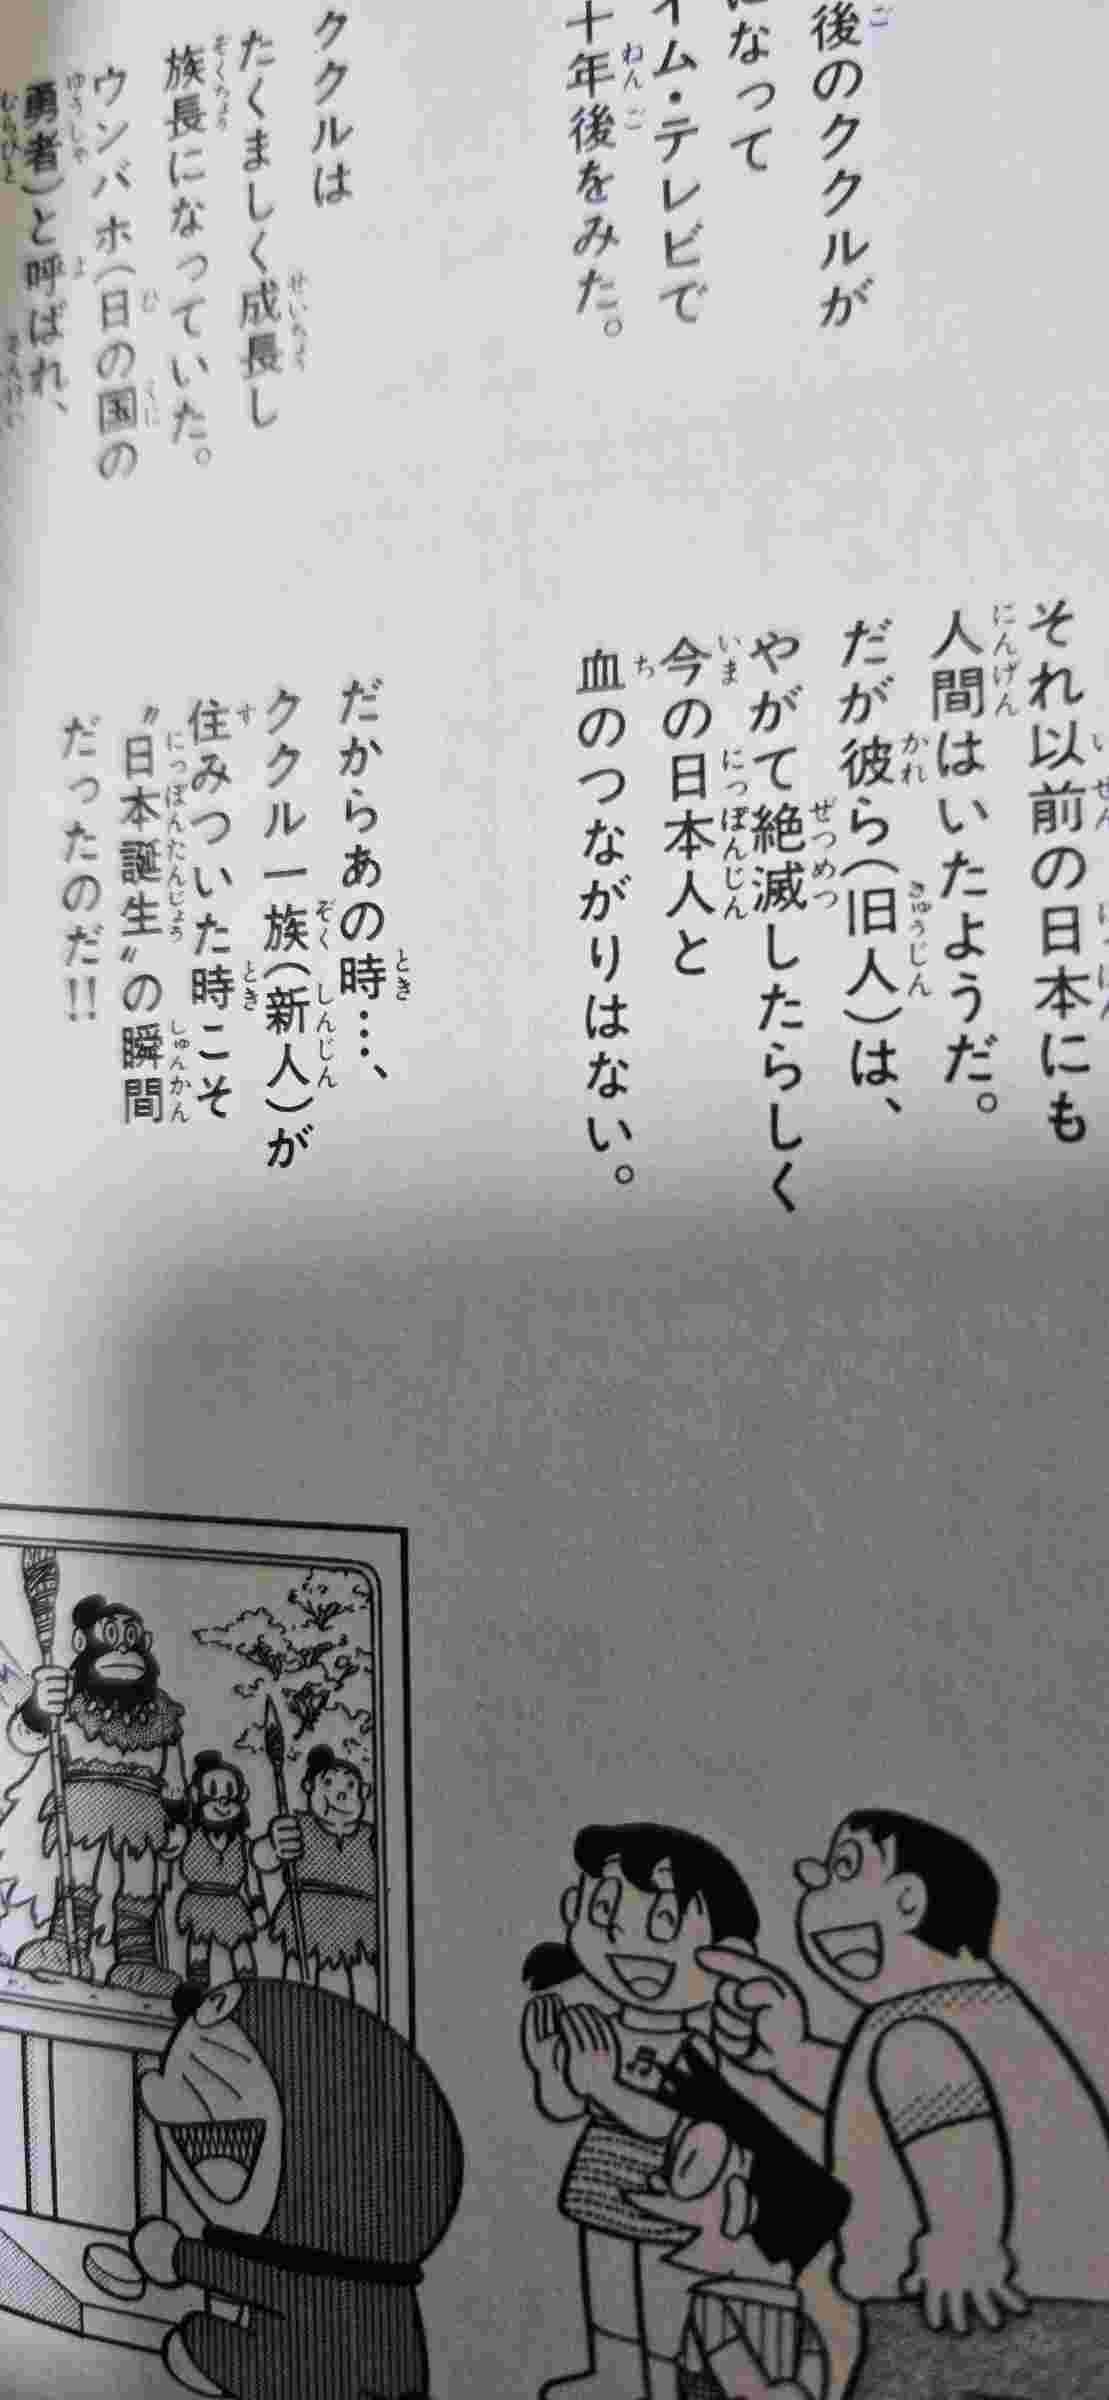 後のククルが
になって
イム・テレビで
十年後をみた。
ククルは
たくましく成長し
族長になっていた。
ウンバホ(日の国の
勇者)と呼ばれ、
それ以前の日本にも
人間はいたようだ。
だが彼ら(旧人)は、
やがて絶滅したらしく
今の日本人と
血のつながりはない。
だからあの時…、
ククル一族(新人)が
住みついた時こそ
〝日本誕生〟の瞬間
だったのだ!!